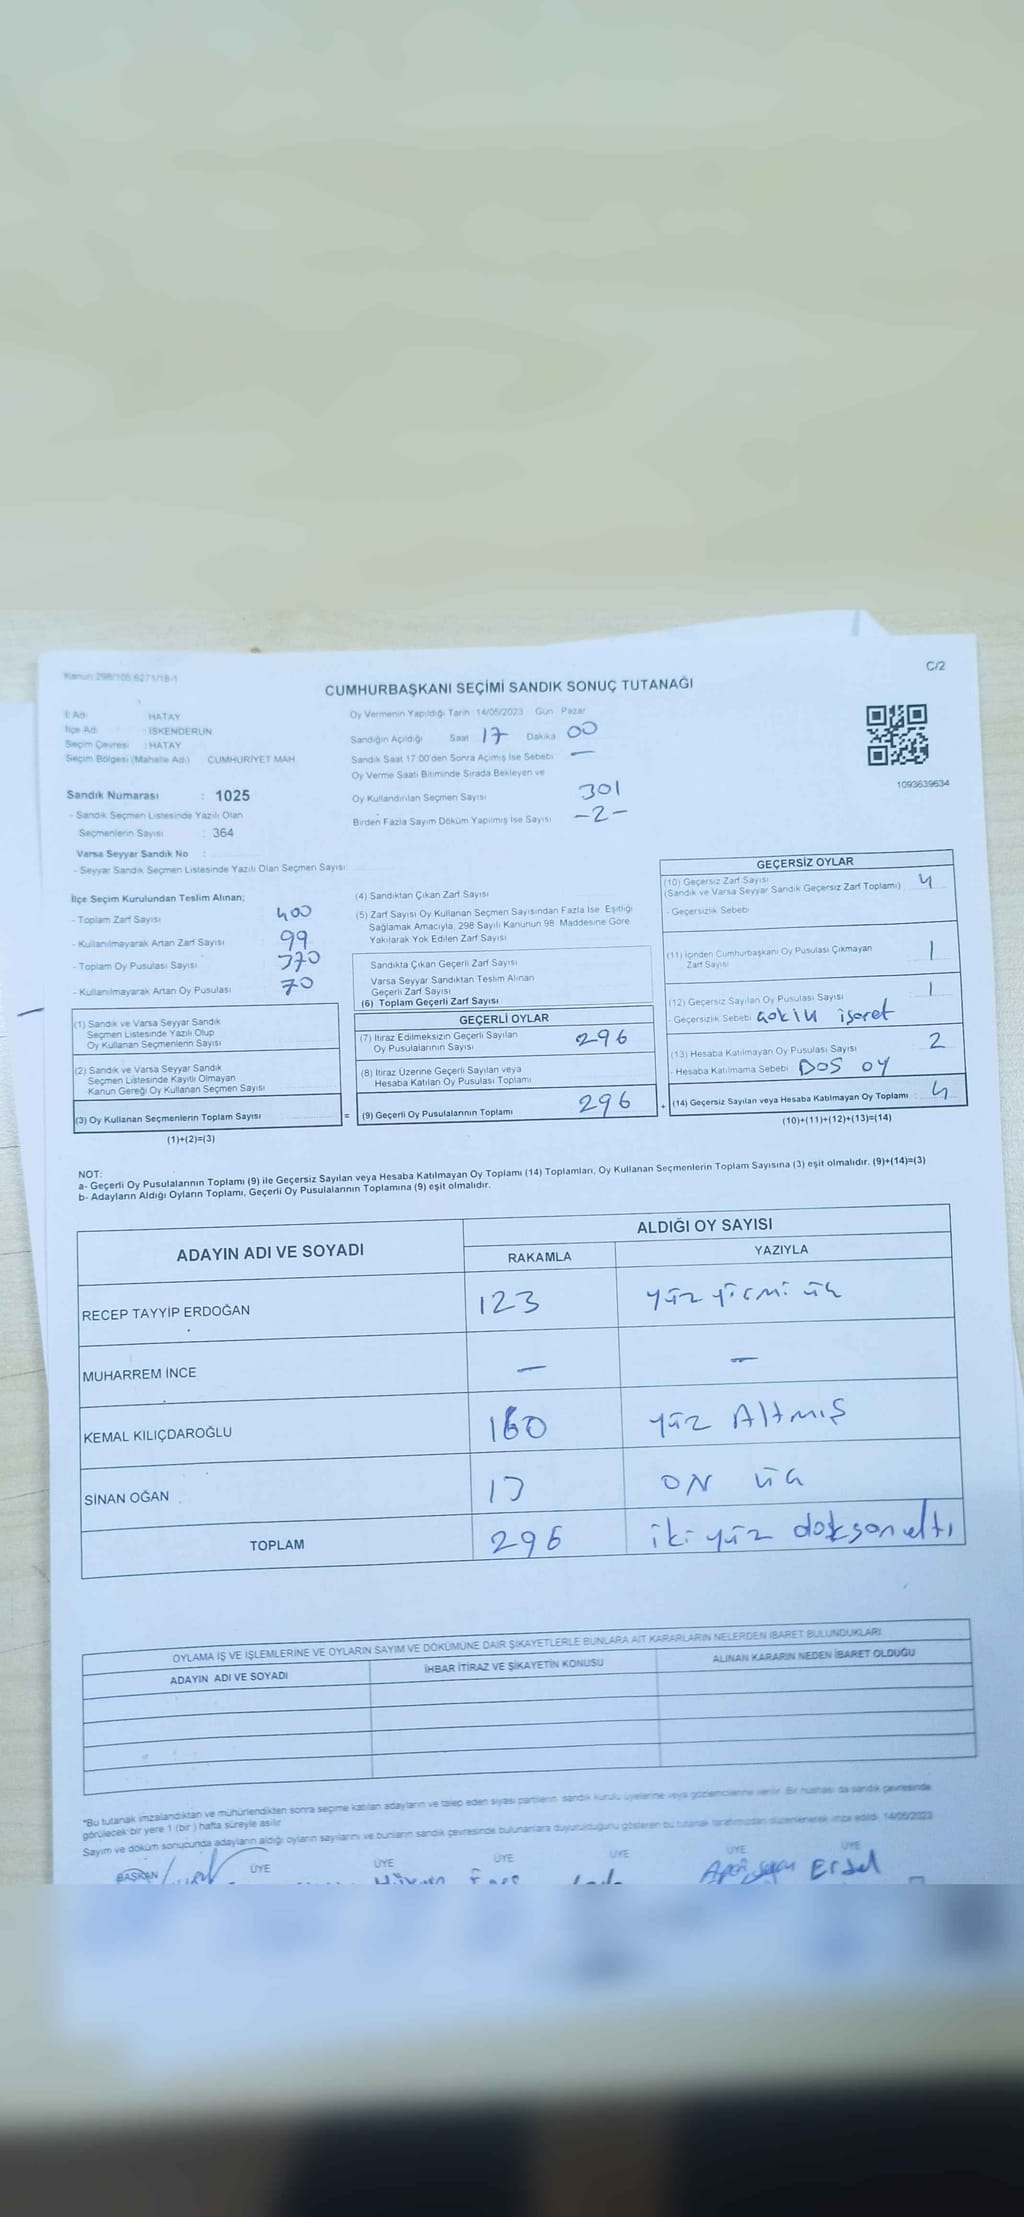 Kanun:298/105,6271/18-1
C/2
CUMHURBAŞKANI SEÇİMİ SANDIK SONUÇ TUTANAĞI
İl Adı : HATAY
İlçe Adı : İSKENDERUN
Seçim Çevresi : HATAY
Seçim Bölgesi (Mahalle Adı) CUMHURİYET MAH
Sandık Numarası : 1025
- Sandık Seçmen Listesinde Yazılı Olan
Seçmenlerin Sayısı : 364
Varsa Seyyar Sandık No :
- Seyyar Sandık Seçmen Listesinde Yazılı Olan Seçmen Sayısı
Oy Vermenin Yapıldığı Tarih 14/05/2023 Gün Pazar
Sandığın Açıldığı Saat 17 Dakika 00
Sandık Saat 17:00'den Sonra Açımış İse Sebebi —
Oy Verme Saati Bitiminde Sırada Bekleyen ve
Oy Kullandırılan Seçmen Sayısı 301
Birden Fazla Sayım Döküm Yapılmış İse Sayısı -2-
1093639634
İlçe Seçim Kurulundan Teslim Alınan;
- Toplam Zarf Sayısı 400
- Kullanılmayarak Artan Zarf Sayısı 99
- Toplam Oy Pusulası Sayısı 370
- Kullanılmayarak Artan Oy Pusulası 70
(1) Sandık ve Varsa Seyyar Sandık
Seçmen Listesinde Yazılı Olup
Oy Kullanan Seçmenlerin Sayısı
(2) Sandık ve Varsa Seyyar Sandık
Seçmen Listesinde Kayıtlı Olmayan
Kanun Gereği Oy Kullanan Seçmen Sayısı
(3) Oy Kullanan Seçmenlerin Toplam Sayısı =
(1)+(2)=(3)
(4) Sandıktan Çıkan Zarf Sayısı
(5) Zarf Sayısı Oy Kullanan Seçmen Sayısından Fazla İse, Eşitliği
Sağlamak Amacıyla, 298 Sayılı Kanunun 98. Maddesine Göre
Yakılarak Yok Edilen Zarf Sayısı
Sandıkta Çıkan Geçerli Zarf Sayısı
Varsa Seyyar Sandıktan Teslim Alınan
Geçerli Zarf Sayısı
(6) Toplam Geçerli Zarf Sayısı
GEÇERLİ OYLAR
(7) İtiraz Edilmeksizin Geçerli Sayılan
Oy Pusulalarının Sayısı 296
(8) İtiraz Üzerine Geçerli Sayılan veya
Hesaba Katılan Oy Pusulası Toplamı
(9) Geçerli Oy Pusulalarının Toplamı 296 +
GEÇERSİZ OYLAR
(10) Geçersiz Zarf Sayısı
(Sandık ve Varsa Seyyar Sandık Geçersiz Zarf Toplamı) 4
- Geçersizlik Sebebi
(11) İçinden Cumhurbaşkanı Oy Pusulası Çıkmayan
Zarf Sayısı 1
(12) Geçersiz Sayılan Oy Pusulası Sayısı 1
- Geçersizlik Sebebi işaret
(13) Hesaba Katılmayan Oy Pusulası Sayısı 2
- Hesaba Katılmama Sebebi BOŞ OY
(14) Geçersiz Sayılan veya Hesaba Katılmayan Oy Toplamı : 4
(10)+(11)+(12)+(13)=(14)
NOT:
a- Geçerli Oy Pusulalarının Toplamı (9) ile Geçersiz Sayılan veya Hesaba Katılmayan Oy Toplamı (14) Toplamları, Oy Kullanan Seçmenlerin Toplam Sayısına (3) eşit olmalıdır. (9)+(14)=(3)
b- Adayların Aldığı Oyların Toplamı, Geçerli Oy Pusulalarının Toplamına (9) eşit olmalıdır.
ADAYIN ADI VE SOYADI
ALDIĞI OY SAYISI
RAKAMLA YAZIYLA
RECEP TAYYİP ERDOĞAN 123 yüz yirmi üç
MUHARREM İNCE — —
KEMAL KILIÇDAROĞLU 160 yüz Altmış
SİNAN OĞAN 13 ON üç
TOPLAM 296 iki yüz doksan altı
OYLAMA İŞ VE İŞLEMLERİNE VE OYLARIN SAYIM VE DÖKÜMÜNE DAİR ŞİKAYETLERLE BUNLARA AİT KARARLARIN NELERDEN İBARET BULUNDUKLARI
ADAYIN ADI VE SOYADI İHBAR İTİRAZ VE ŞİKAYETİN KONUSU ALINAN KARARIN NEDEN İBARET OLDUĞU
*Bu tutanak imzalandıktan ve mühürlendikten sonra seçime katılan adayların ve talep eden siyasi partilerin, sandık kurulu üyelerine veya gözlemcilerine verilir. Bir nüshası da sandık çevresinde
görülecek bir yere 1 (bir) hafta süreyle asılır.
Sayım ve döküm sonucunda adayların aldığı oyların sayılarını ve bunların sandık çevresinde bulunanlara duyurulduğunu gösteren bu tutanak tarafımızdan düzenlenerek imza edildi. 14/05/2023
BAŞKAN ÜYE ÜYE ÜYE ÜYE ÜYE ÜYE
Erdal